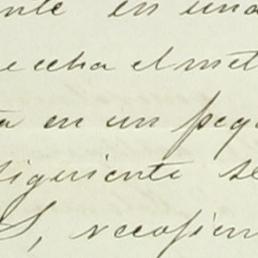 nte en una
echa el met
a en un pequ
siguiente se
S, recogien